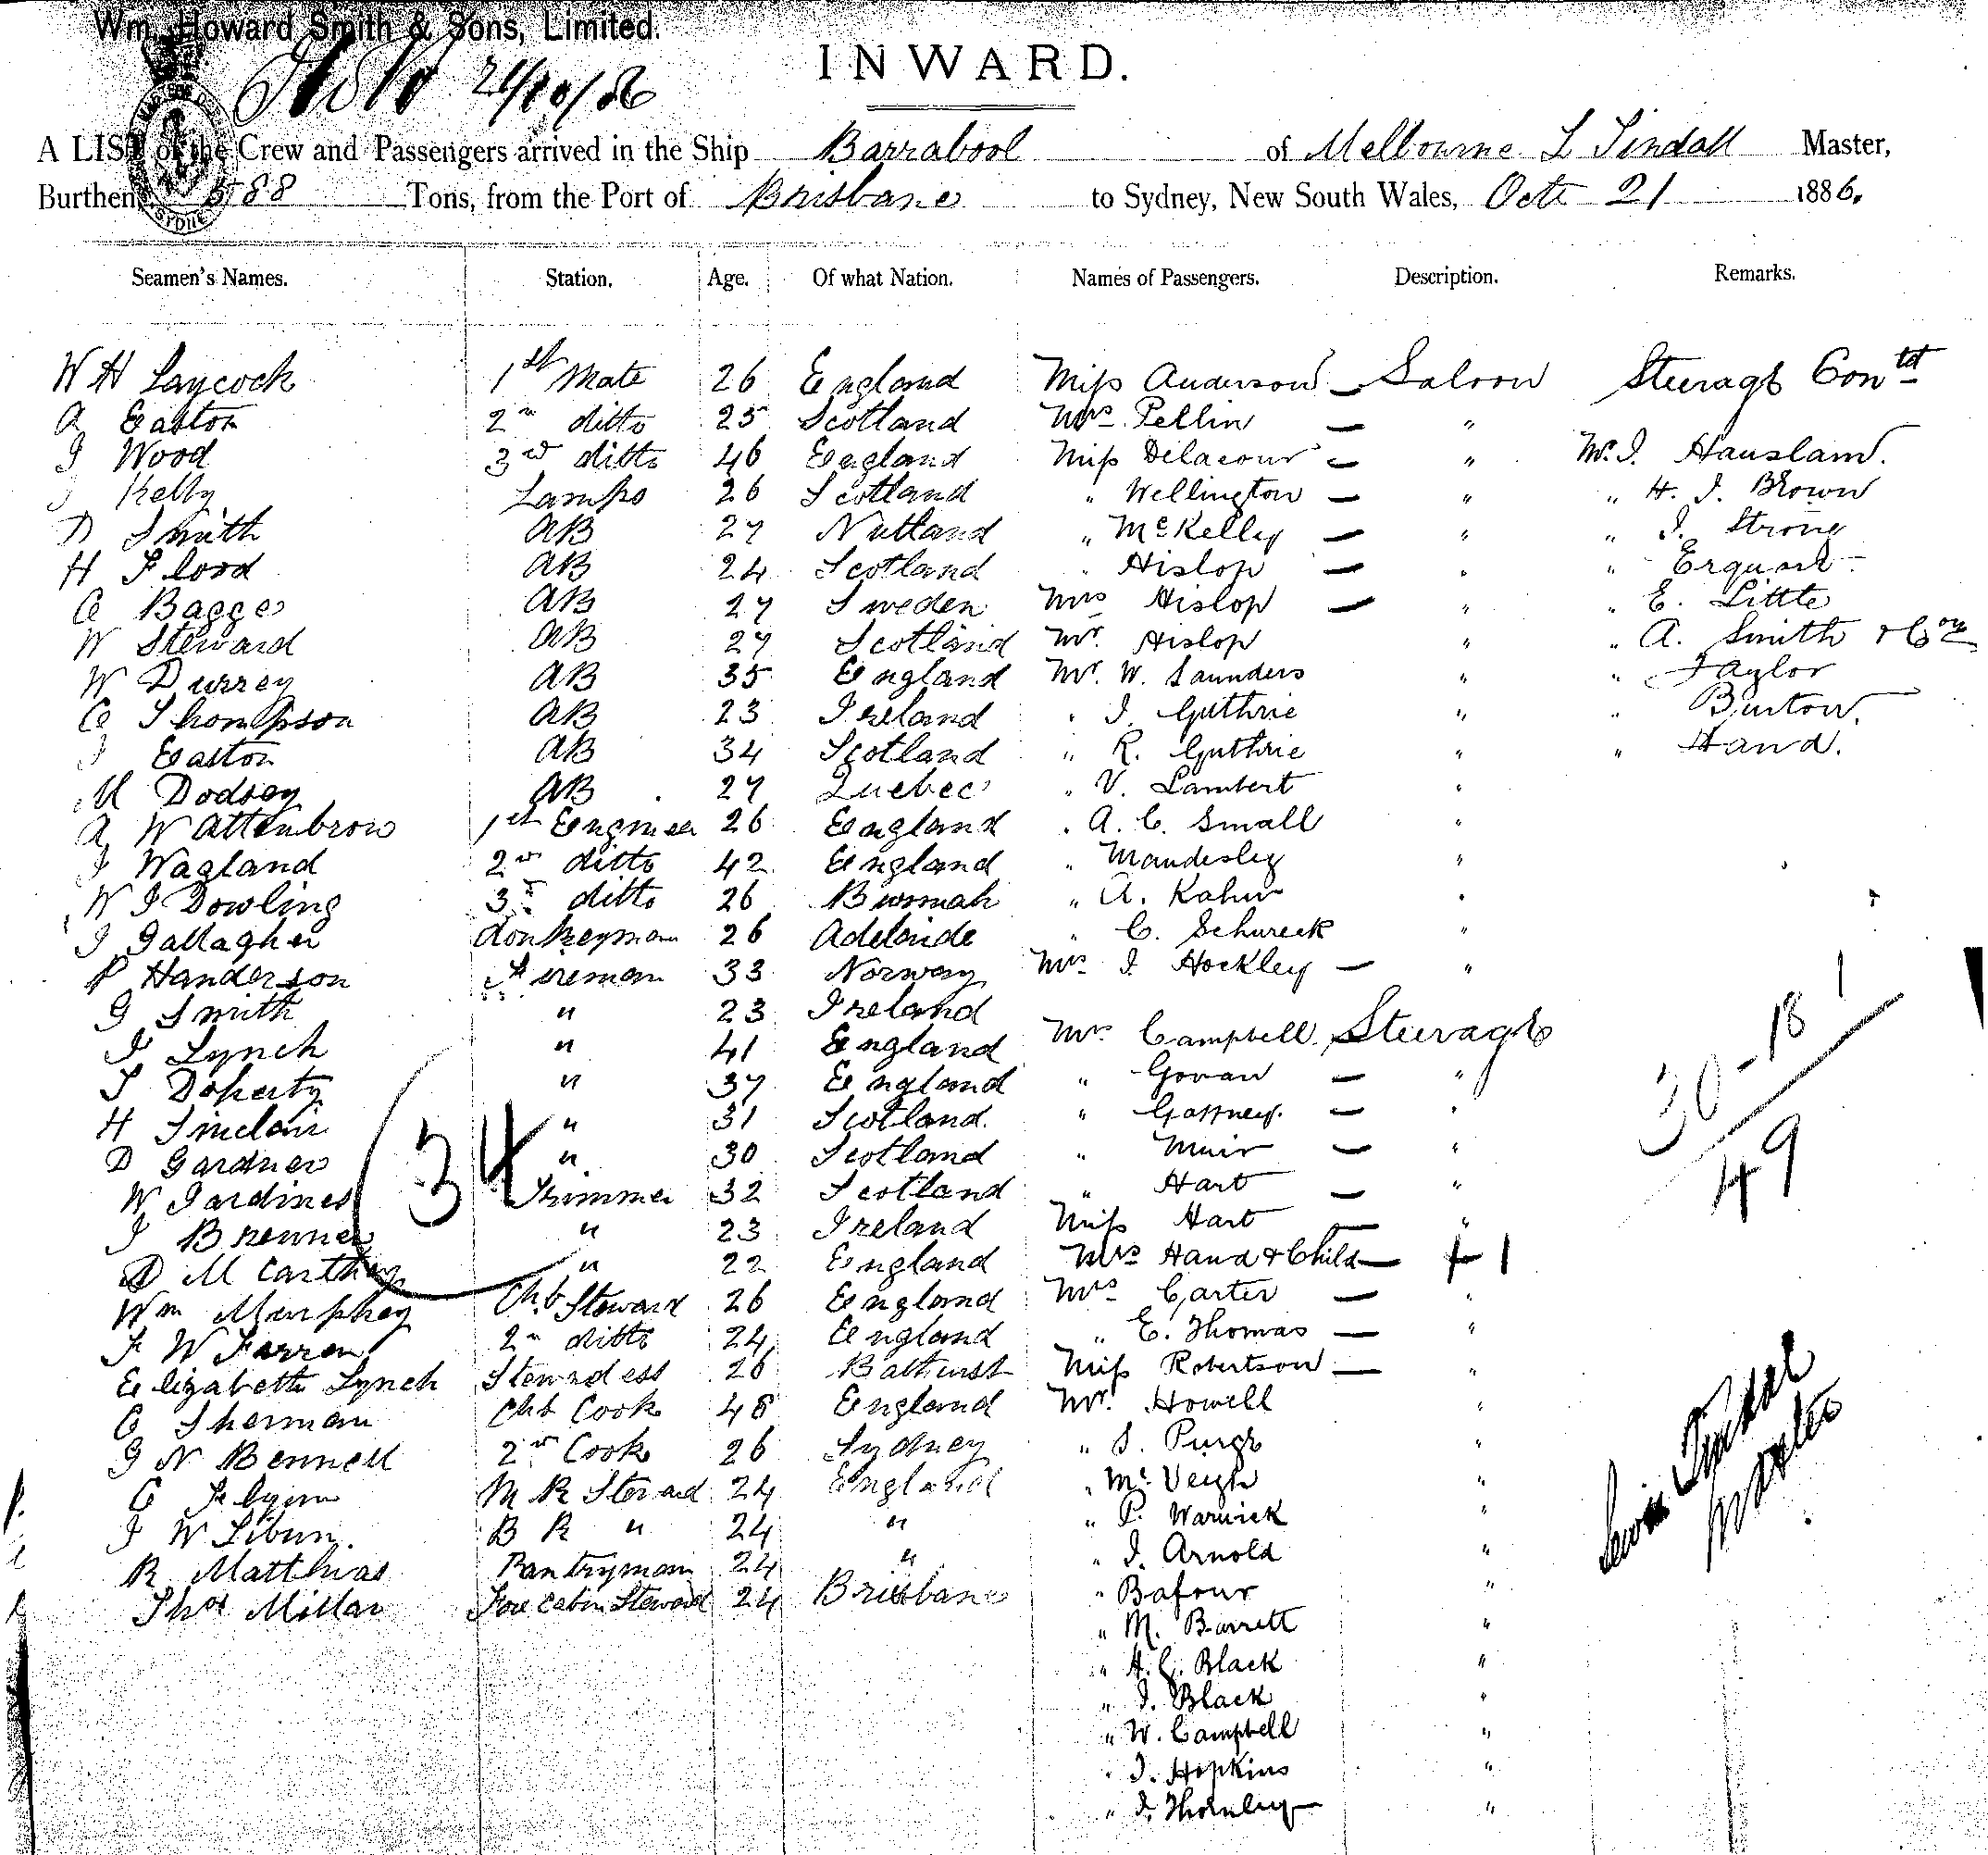 Wm. Howard Smith & Sons, Limited.
21/10/86
INWARD.
A LIST of the Crew and Passengers arrived in the Ship Barrabool of Melbourne L Tindall Master,
Burthen 588 Tons, from the Port of Brisbane to Sydney, New South Wales, Oct 21 1886.
Seamen's Names. Station. Age. Of what Nation. Names of Passengers. Description. Remarks.
W H Laycock 1st Mate 26 England Miss Anderson — Saloon Steerage Contd
A Easton 2nd ditto 25 Scotland Mrs Pellin — "
J Wood 3rd ditto 46 England Miss Delacour — " Mr. J. Hauslam.
J Kelly Lamps 26 Scotland " Wellington — " " H. J. Brown
D Smith AB 27 " McKelley — " " J. Strong
H Flood AB 24 Scotland " Hislop — " "
C Bagge AB 27 Sweden Mrs Hislop — " " E. Little
W Steward AB 27 Scotland Mr. Hislop " " A. Smith & Coy
W Durrey AB 35 England Mr. W. Saunders " " Taylor
C Thompson AB 23 Ireland " J. Guthrie " " Burton.
J Easton AB 34 Scotland " R. Guthrie " " Hand.
M Dodsey AB 27 Quebec " V. Lambert "
A W Attenbrow 1st Engineer 26 England " A. C. Small "
J Wagland 2nd ditto 42 England " Maudesley "
W J Dowling 3rd ditto 26 Burmah " A. Kahn "
J Gallagher donkeyman 26 Adelaide " C. Schureck "
P Handerson Fireman 33 Norway Mrs J. Hockley — "
G Smith " 23 Ireland
J Lynch " 41 England Mrs Campbell Steerage
T Doherty " 37 England " Govan — "
H Sinclair " 31 Scotland. " Gaffney. — "
D Gardner " 30 Scotland " Muir — "
W Jardines Trimmer 32 Scotland " Hart — "
J Brenner " 23 Ireland Miss Hart — "
D M Carthy " 22 England Mrs Hand & Child — + 1
Wm Murphey Chf Steward 26 England Mrs Carter — "
F W Farren 2nd ditto 24 England " E. Thomas — "
Elizabeth Lynch Stewardess 26 Bathurst Miss Robertson — "
C Sherman Chf Cook 48 England Mr. Howell "
G N Bennell 2nd Cook 26 Sydney " S. Purge "
C Flynn M R Steward 24 England " McVeigh "
J W Libun. B R " 24 " " P. Warwick "
R Matthias Pantryman 24 " " J. Arnold "
Thos Millar Fore Cabin Steward 24 Brisbane " Bafour "
" M. Barrett "
" H. C. Black "
" J. Black "
" W. Campbell "
" J. Hopkins "
" J. Thornley "
34
30 - 18 1
49